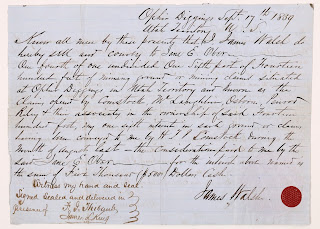 Ophir Diggings Sept. 17th 1859
Utah Territory U.S.
Know all men by these presents that I James Walsh do
hereby sell and convey to Jone E. Ober
One fourth of one undivided One Sixth part of Fourteen
hundred feet of mining ground or mining claims situated
at Ophir Diggings in Utah Territory and known as the
claim opened by Comstock, McLaughlin, Osborn, Penrod
Riley & their associates in the ownership of said Fourteen
hundred feet, my one sixth interest in said ground or claim
having been conveyed to me by H. T. P. Comstock during the
month of August last – the consideration paid to me by the
said Jone E. Ober for the interest above named is
the sum of Five Thousand ($5000) Dollars Cash.
Witness my hand and Seal
Signed Sealed and delivered in
presence of
James Walsh